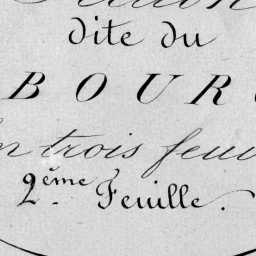 dite du
BOUR
en trois feui
2.ème Feuille.